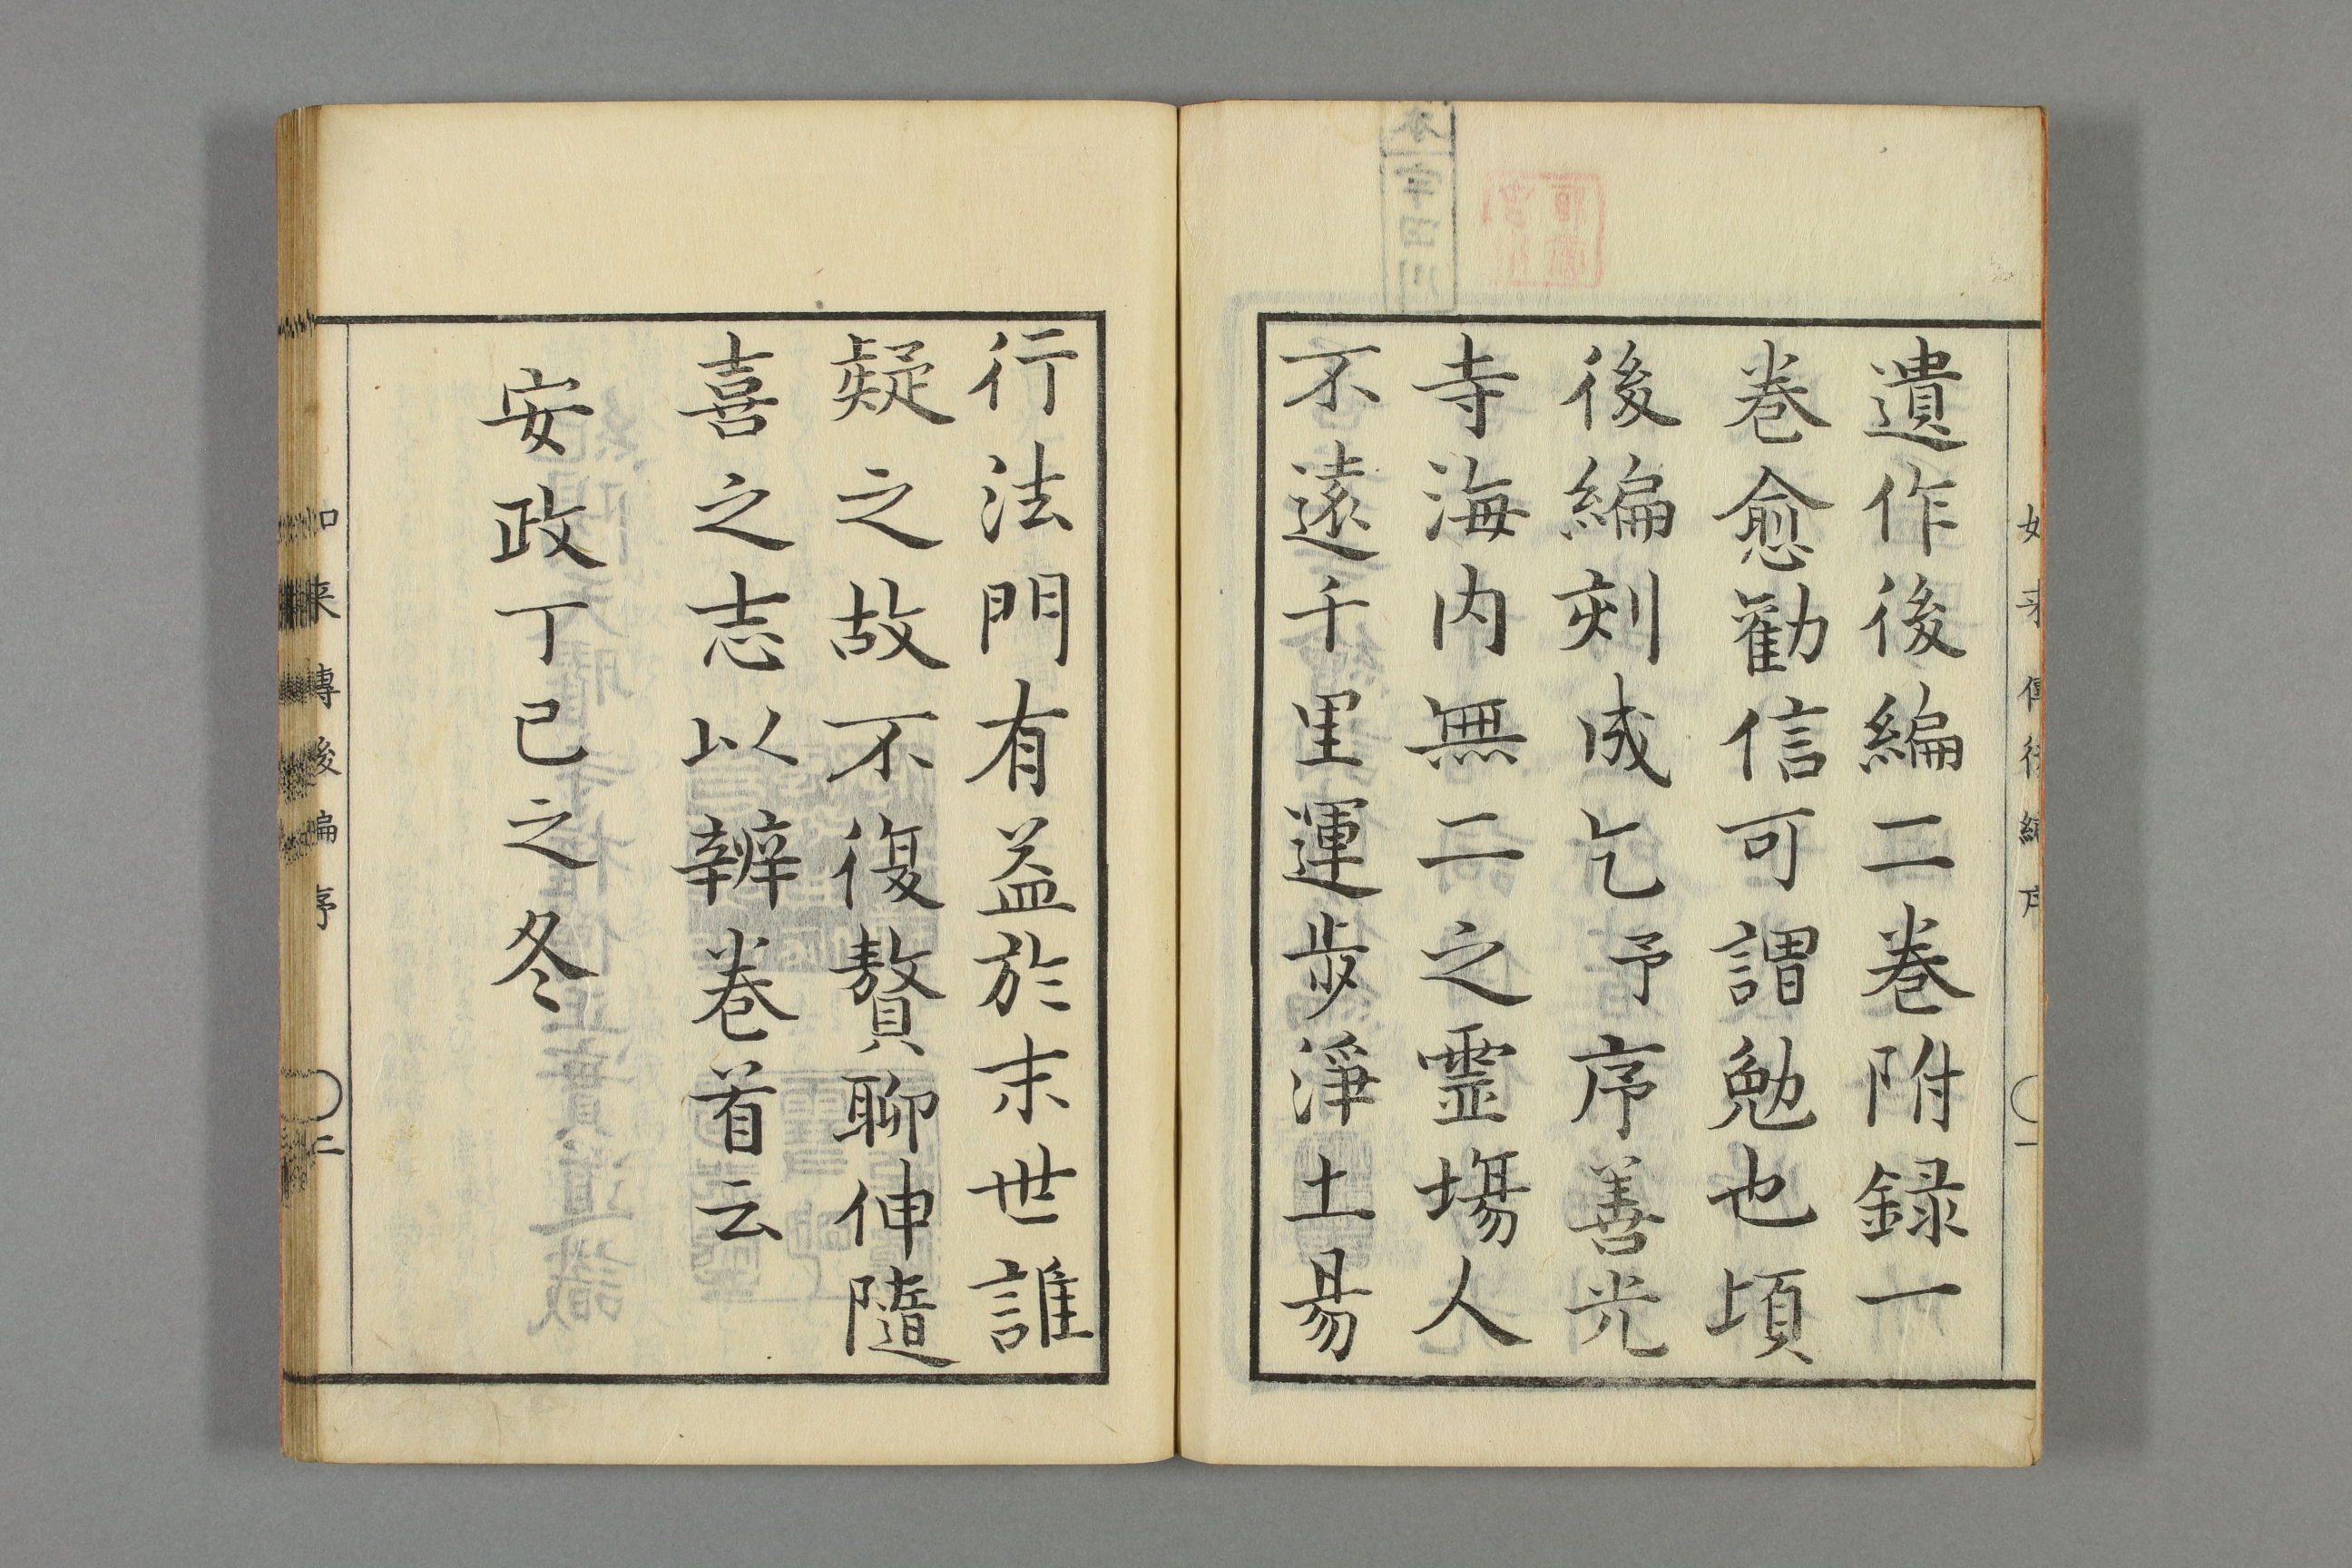 遺作後編二巻附録一
巻愈勸信可謂勉也頃
後編刻成乞予序善光
寺海内無二之霊場人
不遠千里運歩淨土易
行法門有益於末世誰
疑之故不復贅聊伸隨
喜之志以辨巻首云
安政丁巳之冬
来傳後編序
二